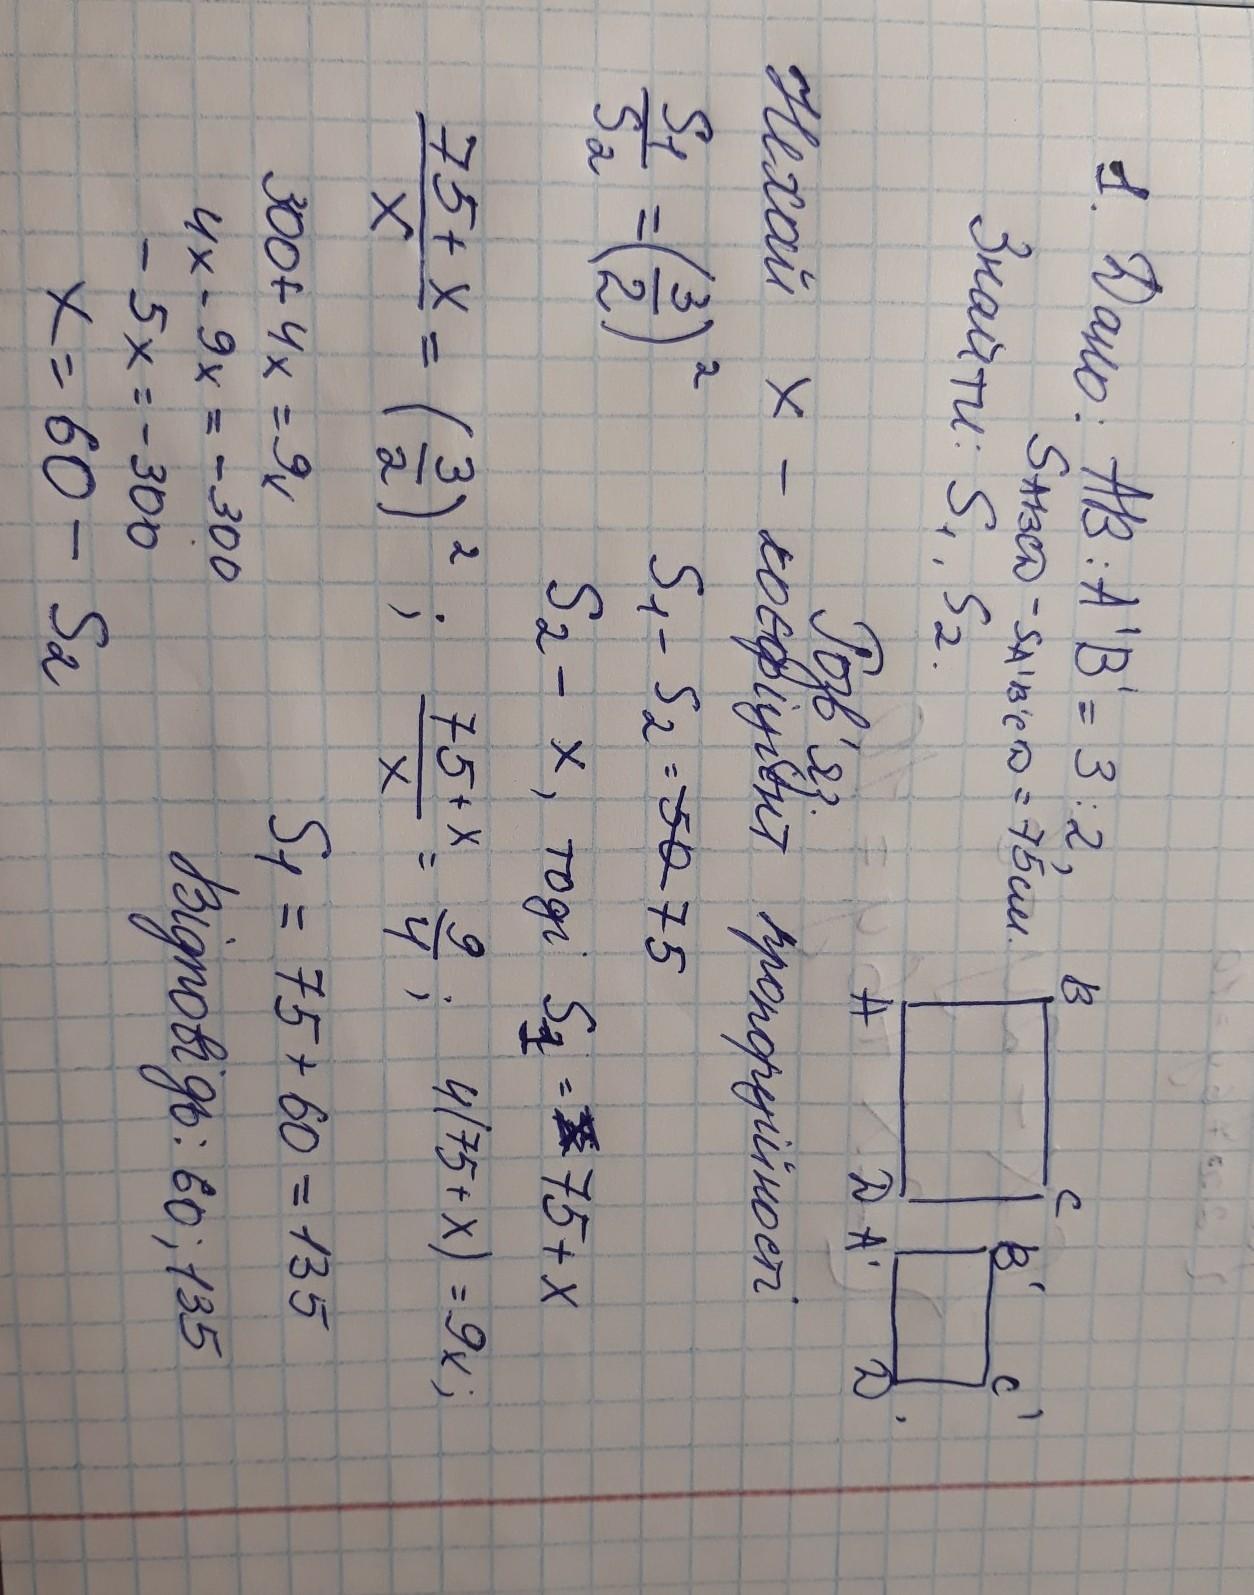 1. Дано: AB : A'B' = 3 : 2,
SABCD - SA'B'C'D = 75см.
Знайти: S1, S2.
B
C
A
D
B'
C'
A'
D'
Розв'яз.
Нехай x - коефіцієнт пропорційності
S1/S2 = (3/2)²
S1 - S2 = 50 75
S2 - x, тоді S1 = 75 + x
75 + x / x = (3/2)² ; 75 + x / x = 9/4 ; 4(75 + x) = 9x ;
300 + 4x = 9x
4x - 9x = -300
- 5x = -300
x = 60 - S2
S1 = 75 + 60 = 135
Відповідь: 60 ; 135